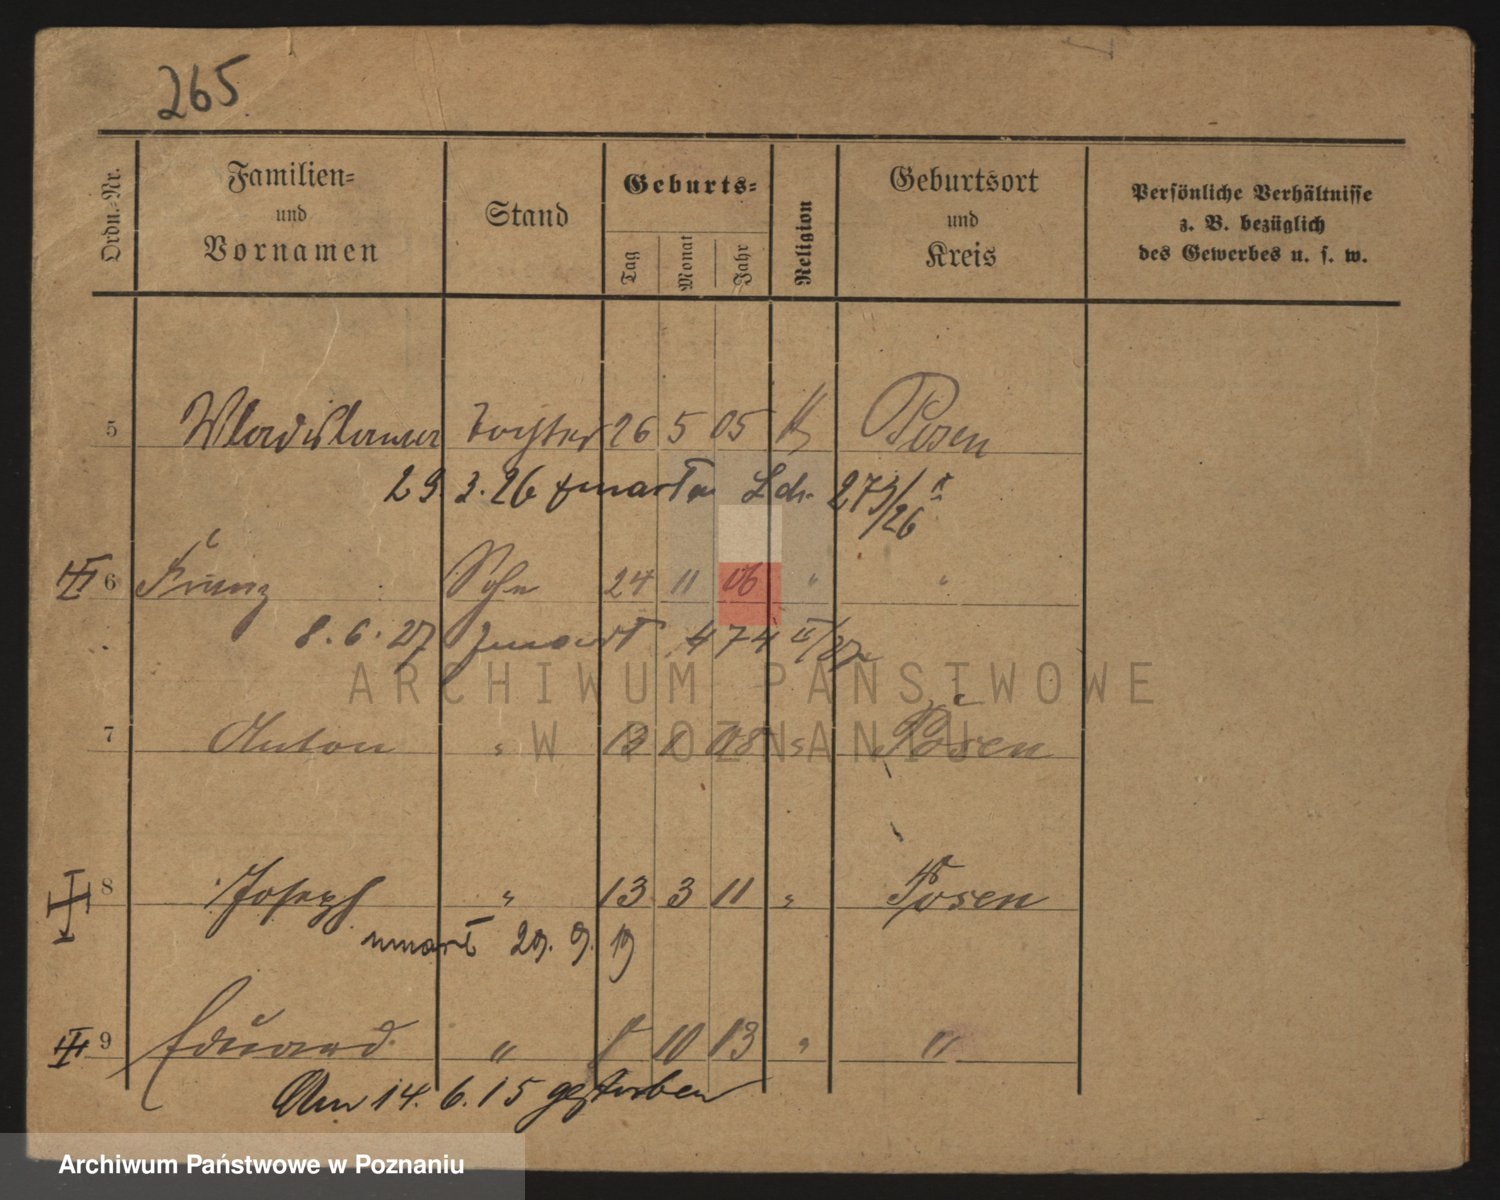 265
Ordn.-Nr.
Familien-
und
Vornamen
Stand
Geburts-
Tag
Monat
Jahr
Religion
Geburtsort
und
Kreis
Persönliche Verhältnisse
z. B. bezüglich
des Gewerbes u. s. w.
5 Wladislawa Tochter 26 5 05 K Posen
29 3. 26 zmarła Ldr. 273/26
6 Franz Sohn 24 11 06 " "
8. 6. 27 zmarł 474 II/27
7 Anton " 13 1 08 " Posen
8 Joseph " 13 3 11 " Posen
umarł 29. 9. 19
9 Eduard " 1 10 13 " "
Am 14. 6. 15 gestorben
ARCHIWUM PAŃSTWOWE
W POZNANIU
Archiwum Państwowe w Poznaniu